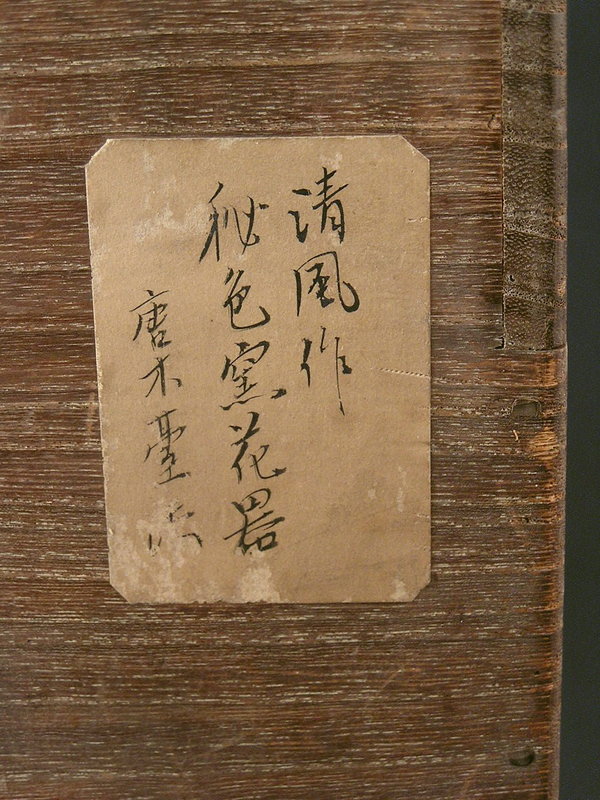 清風作
秘色窯花器
唐木臺